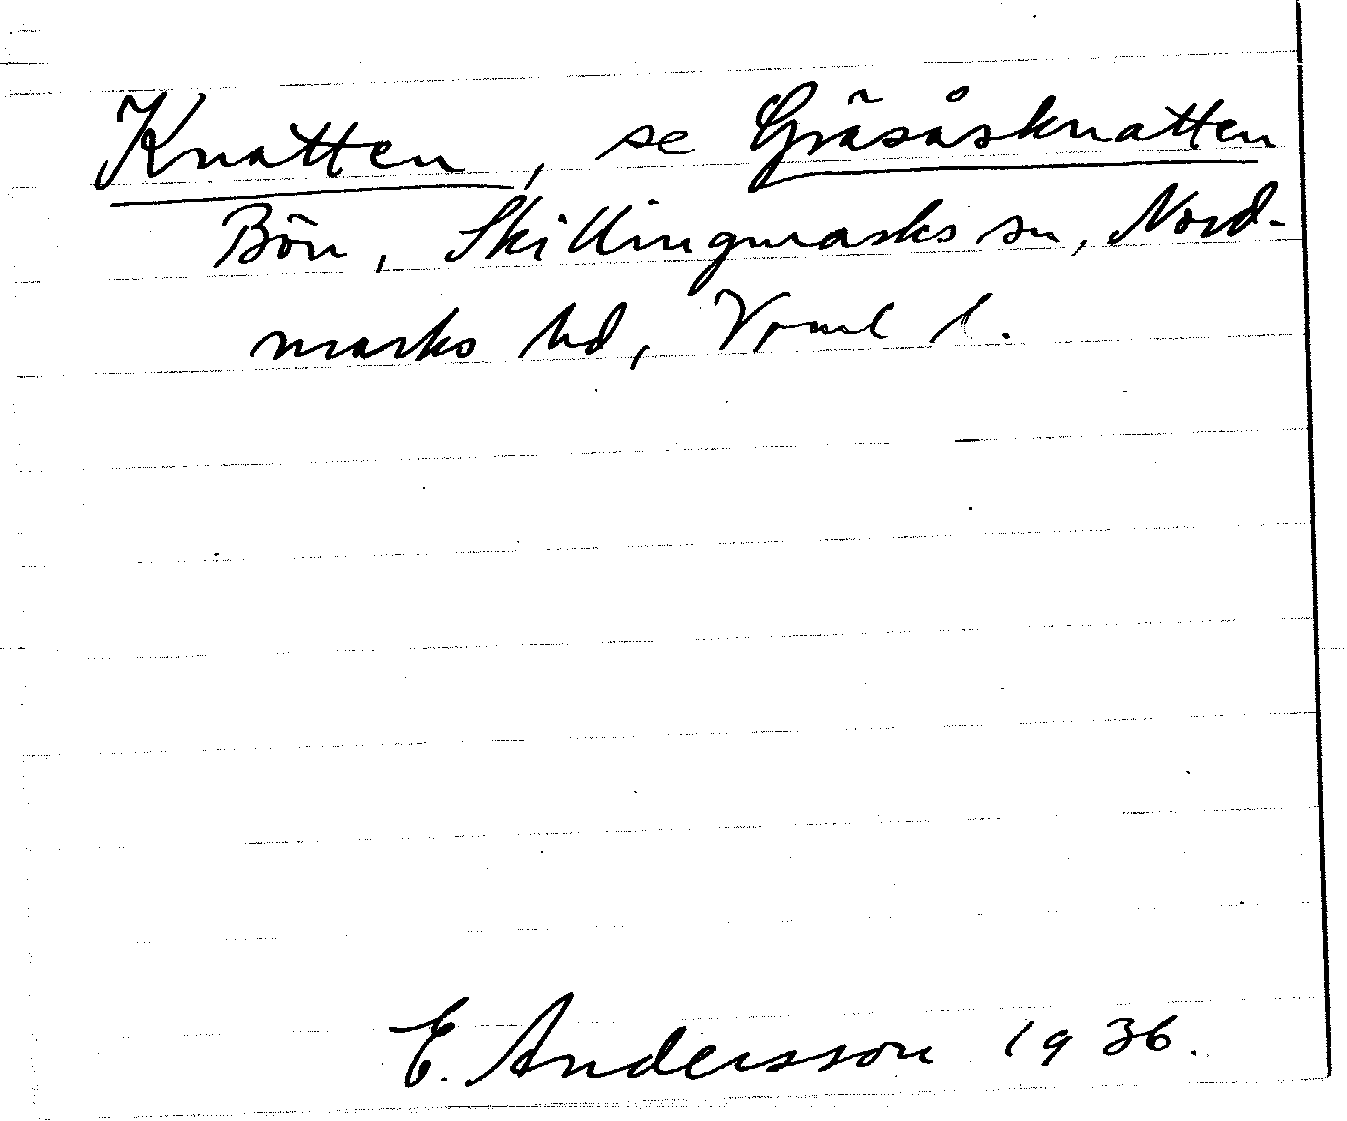 Knatten, se Gräsåsknatten
Bön, Skillingmarks sn, Nord-
marks hd, Vrml l.
E. Andersson 1936.